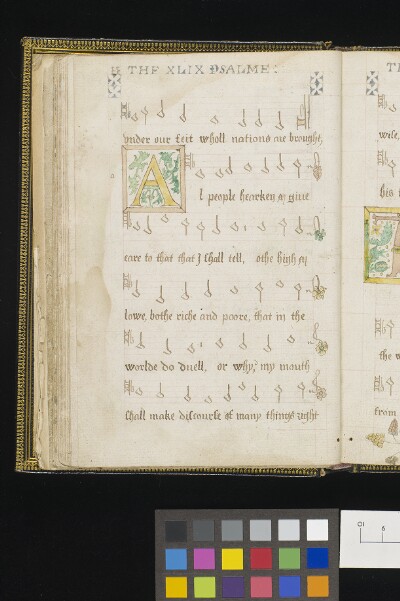 THE XLIX PSALME:
vnder our feit wholl nations are brought,
Al people hearken & giue
eare to that that I shall tell, bothe high &
lowe, bothe riche and poore, that in the
worlde do duell. For why? my mouth
shall make discourse of many things right
TH
wise,
his
the w
from